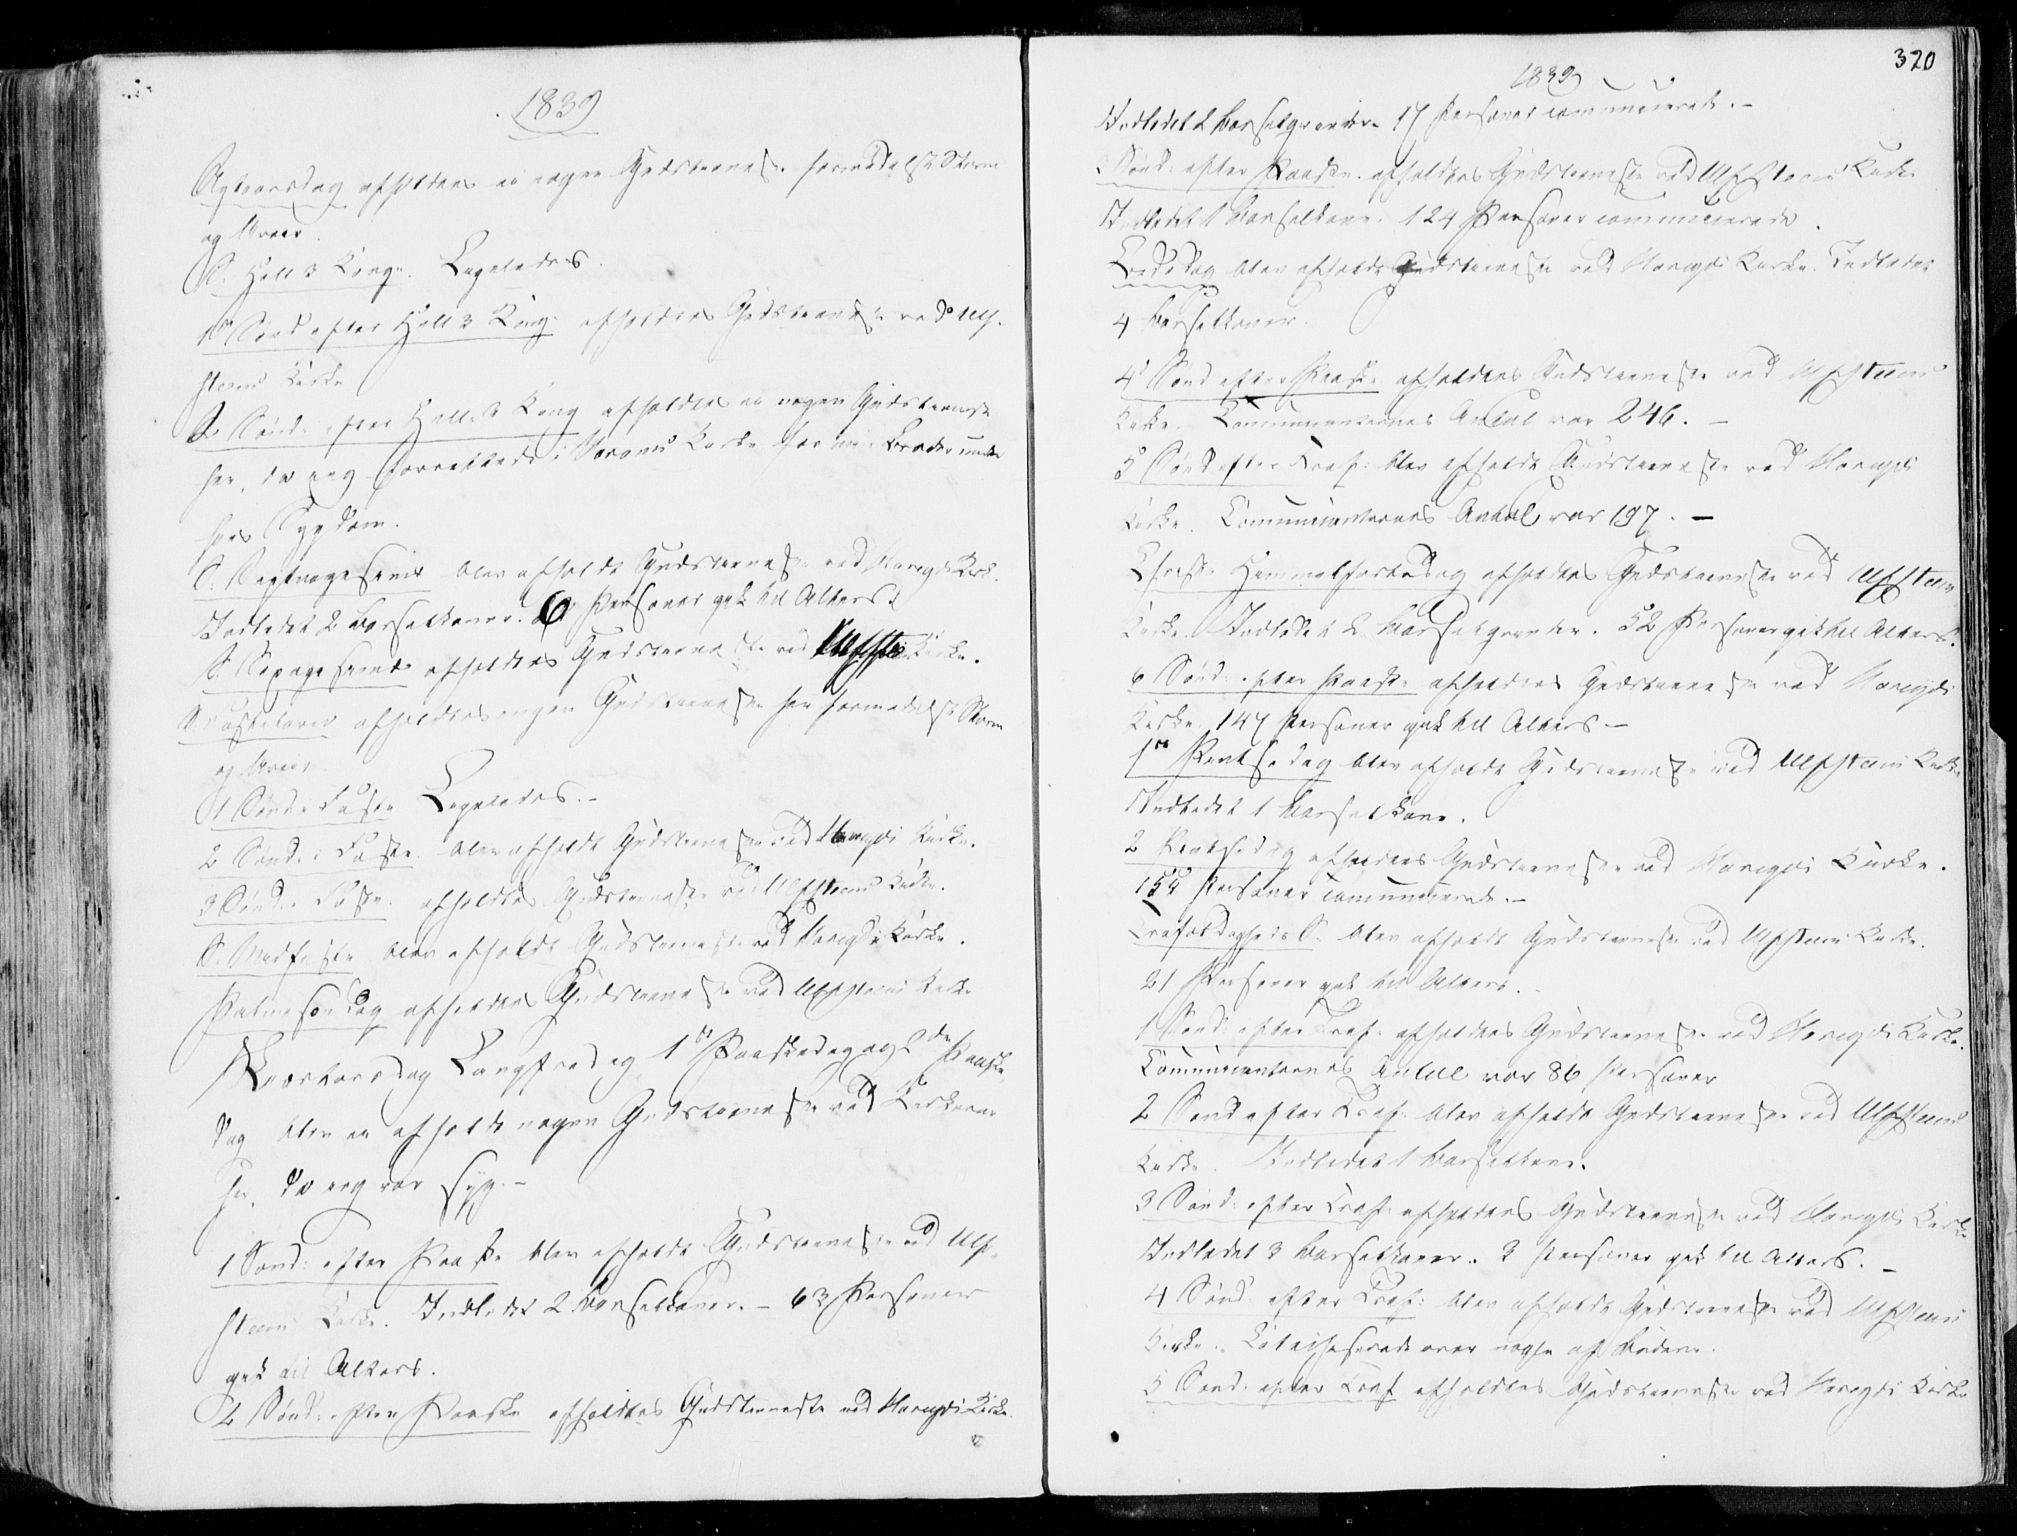 1839
Nytaarsdag afholdtes ei nogen Gudstieneste formedelst Storm
og Uveir.
S. Hell 3 Konge. Ligeledes.
1ste Sønd efter Hell 3 Kong: afholdtes Gudstieneste ved Ulf-
steens Kirke
2 Sønd: efter Hell. 3 Kong afholdtes ei nogen Gudstieneste
her, da jeg forrettede i Kirke for min Broder under
hans Sygdom.
S. Septuagesima blev afholdt Gudstieneste ved Herøy Kirke.
Indledet 2 Barselkoner. 6 Personer gik til Alters.
S. Sexagesima afholdtes Gudstieneste ved Ulfsteens Kirke.
S. Fastelavn afholdtes ingen Gudstieneste her formedelst Storm
og Uveir.
1 Sønd i Faste Ligeledes.-
2 Sønd. i Faste blev afholdt Gudstieneste ved Herøy Kirke.
3 Sønd. i Faste. afholdtes Gudstieneste ved Ulfsteens Kirke.
S. Midfaste blev afholdt Gudstieneste ved Herøy Kirke.
Palmesøndag afholdtes Gudstieneste ved Ulfsteens Kirke
Skiærtorsdag Langfredag, 1ste Paaskedag og 2den Paaske-
dag blev ei afholdt nogen Gudstieneste ved Kirkerne
her, da jeg var syg.-
1 Sønd: efter Paaske blev afholdt Gudstieneste ved Ulf-
steens Kirke. Indledet 2 Barselkoner. - 63 Personer
gik til Alters.
2 Sønd: efter Paaske afholdtes Gudstieneste ved Herøy Kirke.
320
1839
Indledet 2 Barselqvinder. 17 Personer communicerede.-
3 Sønd: efter Paaske. afholdtes Gudstieneste ved Ulfsteens Kirke
Indledet 1 Barselkone. 124 Personer communicerede.
Bededag blev afholdt Gudstieneste ved Herøy Kirke. Indledet
4 Barselkoner.
4 Sønd efter Paaske afholdtes Gudstieneste ved Ulfsteens
Kirke. Communicanternes Antal var 246. -
5 Sønd efter blev afholdt Gudstieneste ved Herøy
Kirke. Communicanternes Antal var 197. -
Christi Himmelfartsdag afholdtes Gudstieneste ved Ulfsteens
Kirke. Indledet 2 Barselqvinder. 52 Personer gik til Alters.
6 Sønd: efter Paaske afholdtes Gudstieneste ved Herøy
Kirke. 147 Personer gik til Alters -
1ste Pintsedag blev afholdt Gudstieneste ved Ulfsteens Kirke
Indledet 1 Barselkone.
2 Pintsedag afholdtes Gudstieneste ved Herøy Kirke.
154 Personer communicerede.-
Trefoldigheds S. blev afholdt Gudstieneste ved Ulfsteens Kirke.
21 Personer gik til Alters.
1 Sønd: efter Tref: afholdtes Gudstieneste ved Herøy Kirke.
Communicanternes Antal var 86 Personer
2 Sønd efter Tref. blev afholdt Gudstieneste ved Ulfsteens
Kirke. Indledet 1 Barselkone.
3 Sønd: efter Tref: afholdtes Gudstieneste ved Herøy Kirke
Indledet 3 Barselkoner. 3 Personer gik til Alters. -
4 Sønd: efter Tref: blev afholdt Gudstieneste ved Ulfsteens
Kirke. Catechiserede over nogle af Budene.
5 Sønd: efter Tref afholdtes Gudstieneste ved Herøy Kirke